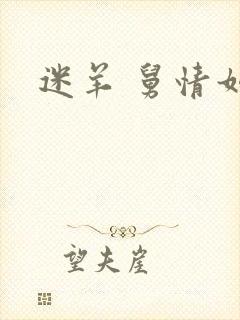 迷羊 舅情如
望夫崖